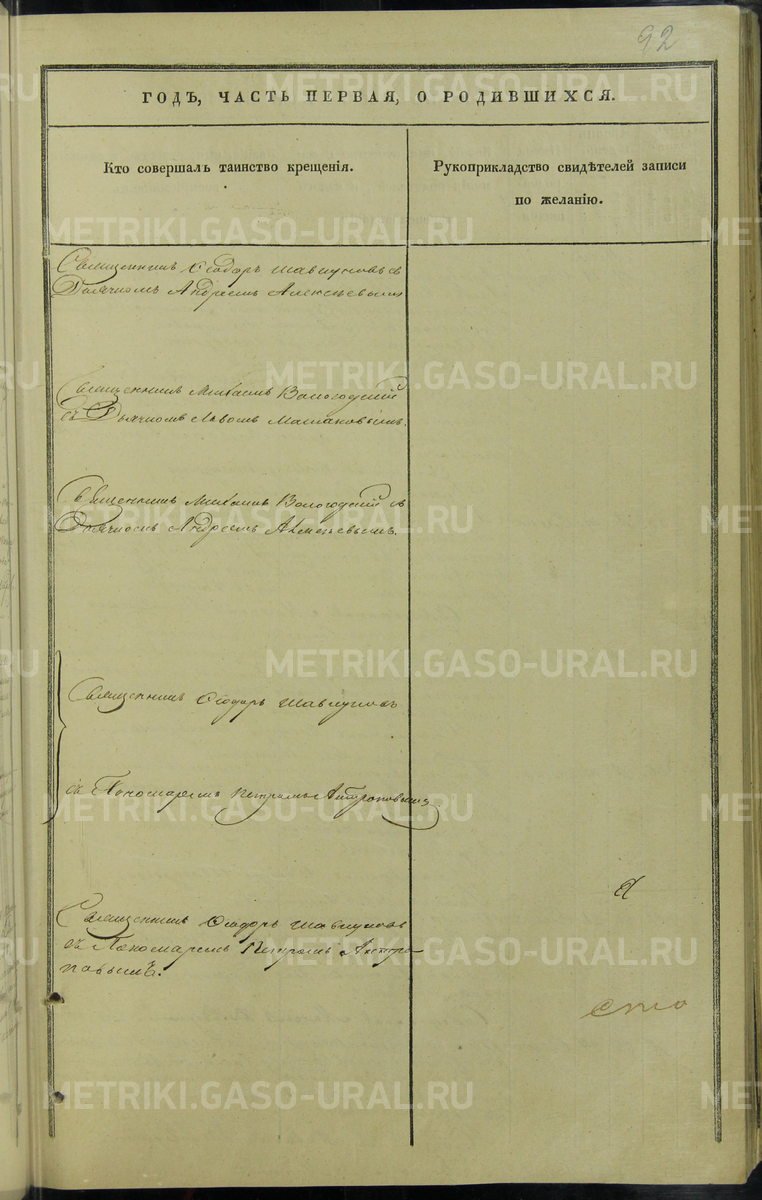 92
ГОДЪ, ЧАСТЬ ПЕРВАЯ, О РОДИВШИХСЯ.
Кто совершалъ таинство крещенія.
Рукоприкладство свидѣтелей записи
по желанію.
Священникъ Ѳеодоръ Шавкуновъ съ
Дьячкомъ Андреемъ Алексѣевымъ
Священникъ Михаилъ Вологодскій
съ Дьячкомъ Львомъ
Священникъ Михаилъ Вологодскій съ
Дьячкомъ Андреемъ Алексѣевымъ.
Священникъ Ѳеодоръ Шавкуновъ
съ Пономаремъ Петромъ Антроповымъ
Священникъ Ѳеодоръ Шавкуновъ
съ Пономаремъ Петромъ Антро-
повымъ.
сто
METRIKI.GASO-URAL.RU